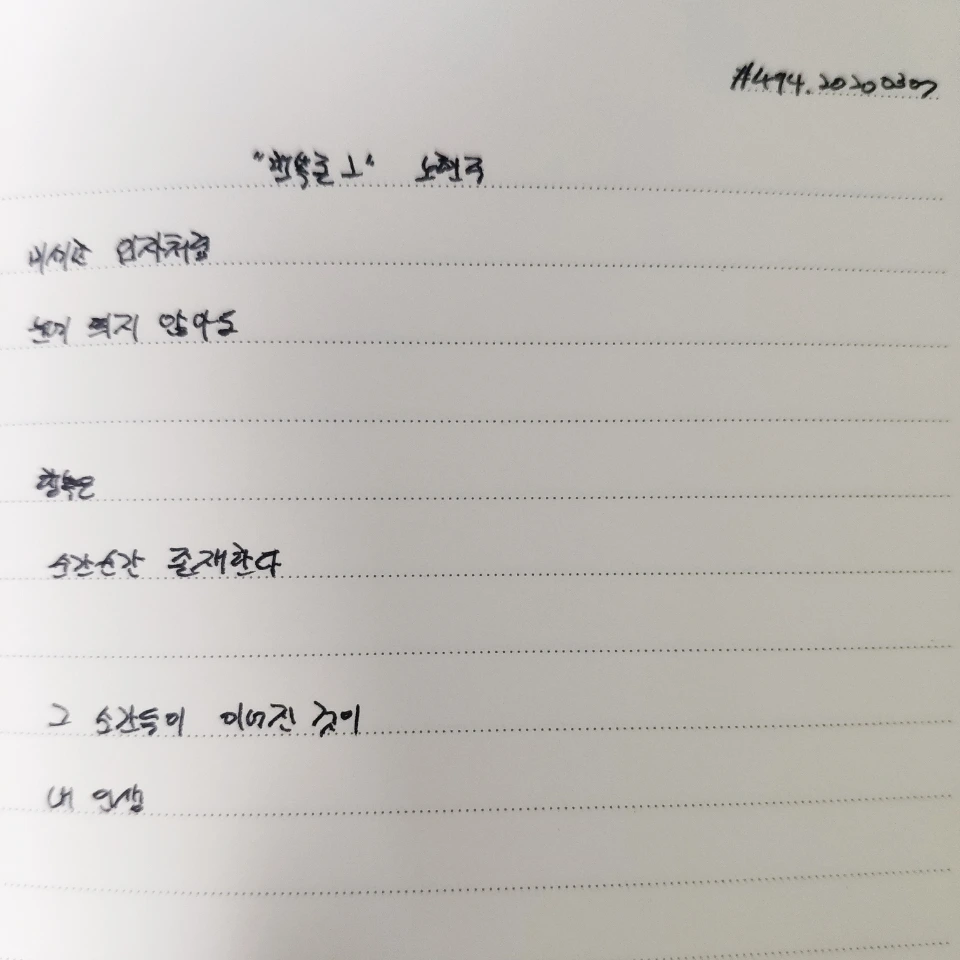 #494. 20200307
"행복론 1" 노현국
미세한 입자처럼
눈에 띄지 않아도
행복은
순간순간 존재한다
그 순간들이 이어진 것이
내 인생